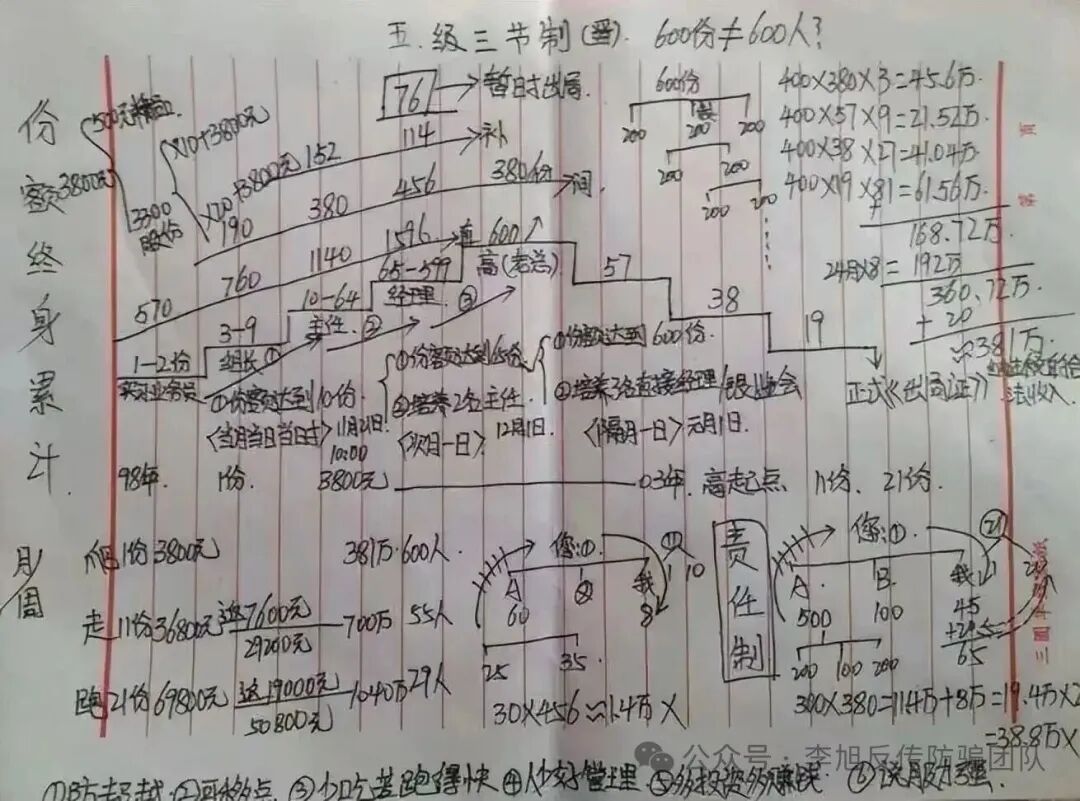 五级三节制(晋). 600份≠600人?
份额终身累计.
500元
3800元
3300
股份
×10+3800元
×20+3800元
76→暂时出局
152 114→补
190 380 456 380份→间
570 760 1140 1596 直 600
1-2份 3-9 10-64 65-599 高(老总) 57 38 19
实习业务员 组长① 主任② 经理③
600份
200 200 200
200 200
200 200
400×380×3=45.6万
400×57×9=21.52万
400×38×27=41.04万
400×19×81=61.56万
168.72万
24月×8=192万
360.72万
+20
≈381万
正式《出局证》
法收入
①份额达到10份.
<当月当日当日时> 11月21日 10:00
①份额达到65份
②培养2名主任.
<次月一日> 12月1日.
①份额达到600份.
②培养3名直接经理
<隔月一日>元月1日.
98年. 1份. 3800元——03年. 高起点 11份. 21份.
月/周
爬1份3800元 381万·600人.
走11份36800元 返7600元 29200元 700万 55人
跑21份69800元 返19000元 50800元 1040万 29人
您:① ⑪
A ② 我 1 10
60 8
25 35
30×456≈1.4万×
责任制
您:① ㉑
A B 我 1
500 100 45
200 100 200 65
300×380=11.4万+8万=19.4万×2
=38.8万×
公众号·李旭反传防骗团队
①防超越 ②可移点 ③少吃苦跑得快 ④人少好管理 ⑤多投资多赚钱 ⑥